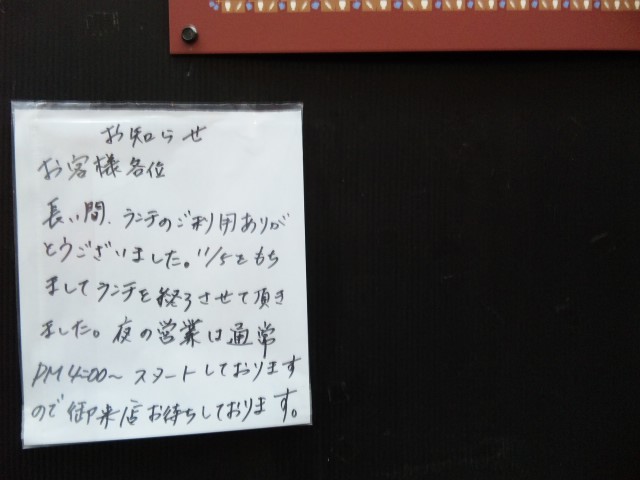 お知らせ
お客様各位
長い間、ランチのご利用ありが
とうございました。11/5をもち
ましてランチを終了させて頂き
ました。夜の営業は通常
PM4:00～スタートしております
ので御来店お待ちしております。